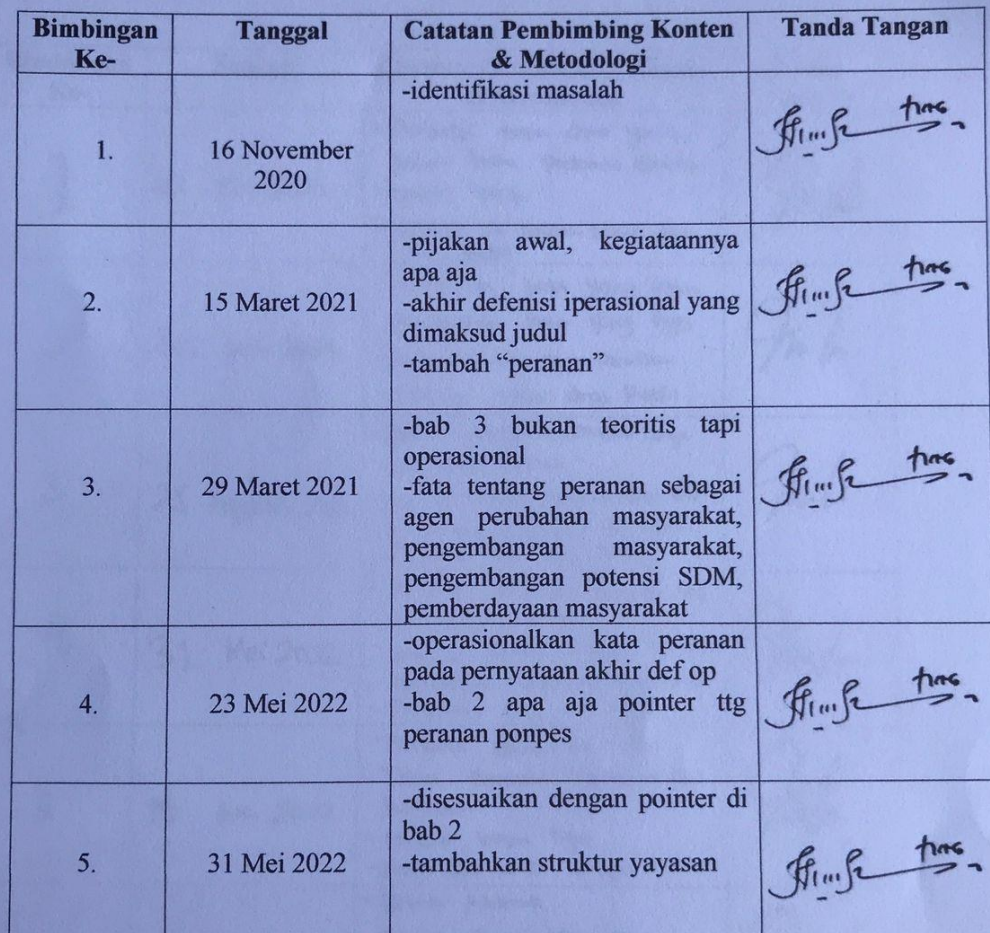 Bimbingan Ke-
Tanggal
Catatan Pembimbing Konten
& Metodologi
Tanda Tangan
1.
16 November
2020
-identifikasi masalah
2.
15 Maret 2021
-pijakan awal, kegiataannya
apa aja
-akhir defenisi iperasional yang
dimaksud judul
-tambah “peranan”
3.
29 Maret 2021
-bab 3 bukan teoritis tapi
operasional
-fata tentang peranan sebagai
agen perubahan masyarakat,
pengembangan masyarakat,
pengembangan potensi SDM,
pemberdayaan masyarakat
4.
23 Mei 2022
-operasionalkan kata peranan
pada pernyataan akhir def op
-bab 2 apa aja pointer ttg
peranan ponpes
5.
31 Mei 2022
-disesuaikan dengan pointer di
bab 2
-tambahkan struktur yayasan